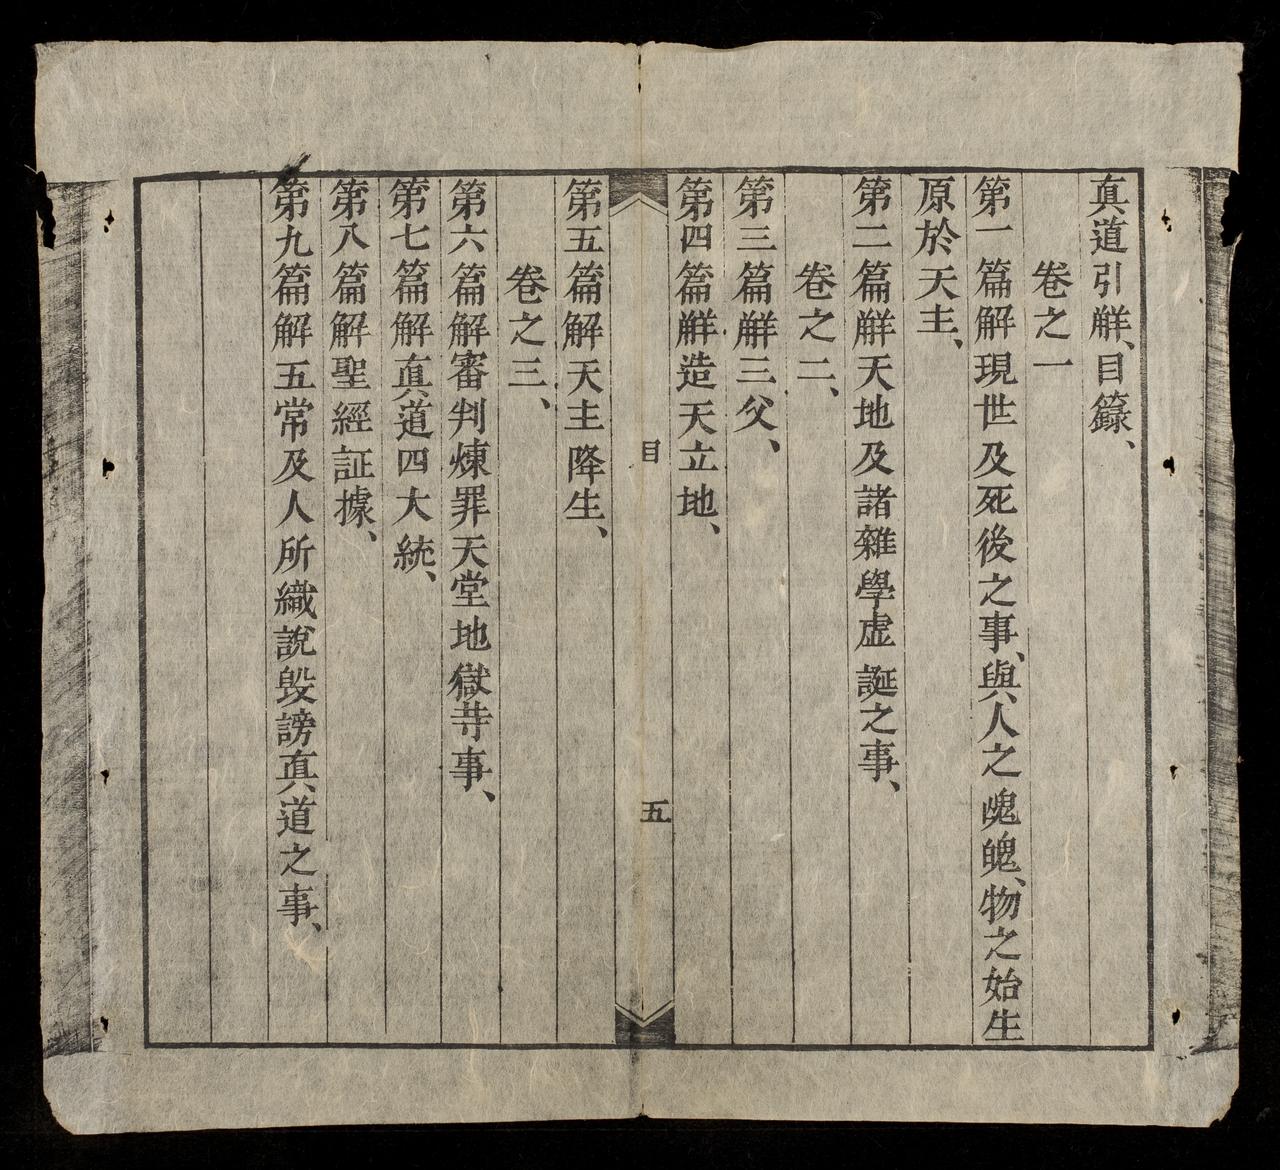 真道引觧、目籙、
卷之一
第一篇解現世及死後之事、與人之魂魄、物之始生
原於天主、
第二篇觧天地及諸雜學虛誕之事、
卷之二、
第三篇觧三父、
第四篇觧造天立地、
目 五
第五篇解天主降生、
卷之三、
第六篇解審判煉罪天堂地獄䓁事、
第七篇解真道四大統、
第八篇解聖經証據、
第九篇解五常及人所織說毀謗真道之事、